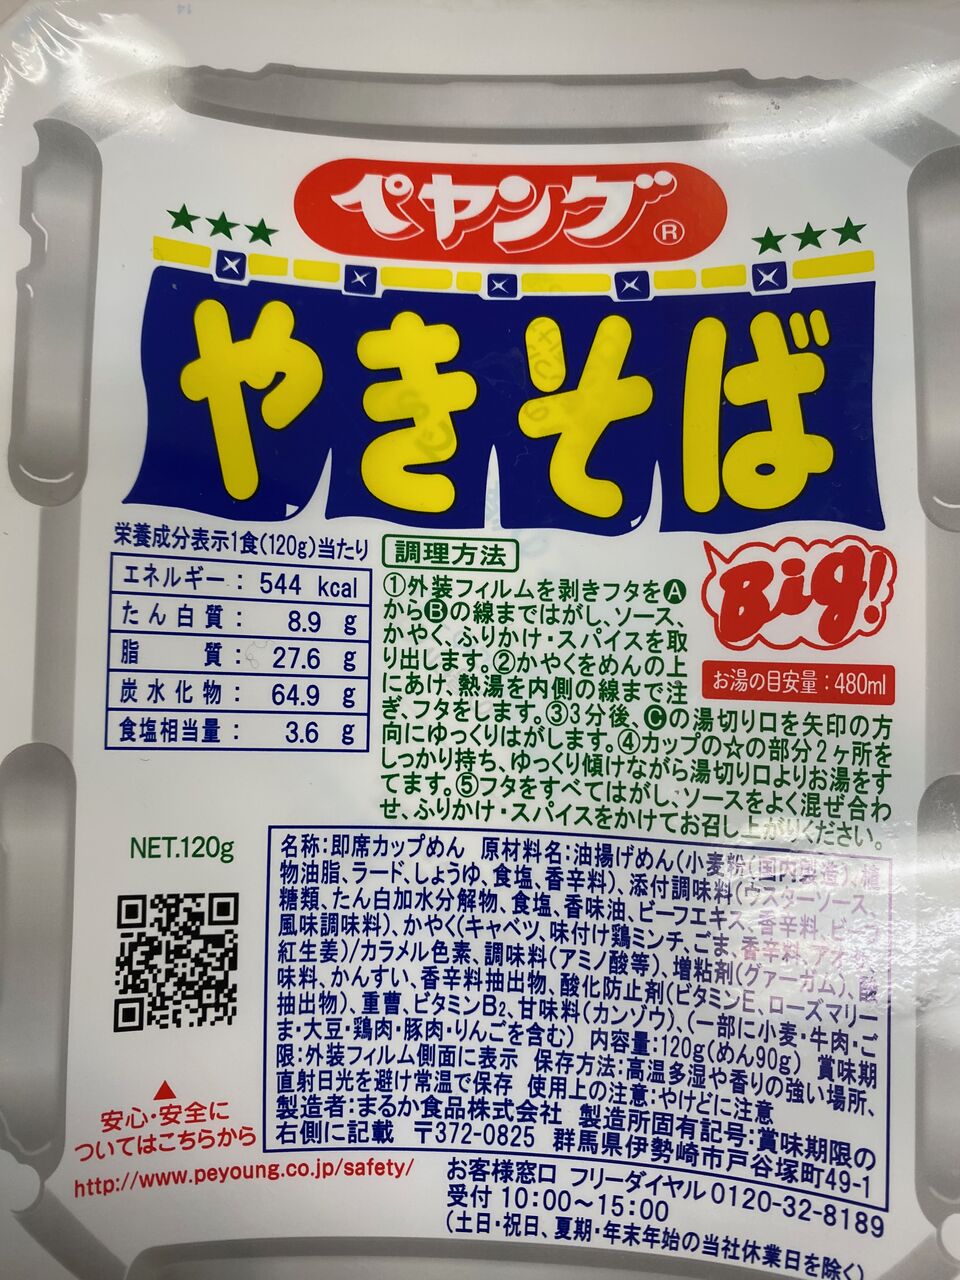 ペヤング®
やきそば
Big!
お湯の目安量:480ml
栄養成分表示1食(120g)当たり
エネルギー: 544 kcal
たん白質: 8.9 g
脂質: 27.6 g
炭水化物: 64.9 g
食塩相当量: 3.6 g
調理方法
①外装フィルムを剥きフタをⒶ
からⒷの線まではがし、ソース、
かやく、ふりかけ・スパイスを取
り出します。②かやくをめんの上
にあけ、熱湯を内側の線まで注
ぎ、フタをします。③3分後、Ⓒの湯切り口を矢印の方
向にゆっくりはがします。④カップの☆の部分2ヶ所を
しっかり持ち、ゆっくり傾けながら湯切り口よりお湯をす
てます。⑤フタをすべてはがし、ソースをよく混ぜ合わ
せ、ふりかけ・スパイスをかけてお召し上がりください。
NET.120g
名称:即席カップめん 原材料名:油揚げめん(小麦粉(国内製造)、植
物油脂、ラード、しょうゆ、食塩、香辛料)、添付調味料(ウスターソース、
糖類、たん白加水分解物、食塩、香味油、ビーフエキス、香辛料、ビーフ
風味調味料)、かやく(キャベツ、味付け鶏ミンチ、ごま、香辛料、アオサ、
紅生姜)/カラメル色素、調味料(アミノ酸等)、増粘剤(グァーガム)、酸
味料、かんすい、香辛料抽出物、酸化防止剤(ビタミンE、ローズマリー
抽出物)、重曹、ビタミンB2、甘味料(カンゾウ)、(一部に小麦・牛肉・ご
ま・大豆・鶏肉・豚肉・りんごを含む) 内容量:120g(めん90g) 賞味期
限:外装フィルム側面に表示 保存方法:高温多湿や香りの強い場所、
直射日光を避け常温で保存 使用上の注意:やけどに注意
製造者:まるか食品株式会社 製造所固有記号:賞味期限の
右側に記載 〒372-0825 群馬県伊勢崎市戸谷塚町49-1
安心・安全に
ついてはこちらから
http://www.peyoung.co.jp/safety/
お客様窓口 フリーダイヤル0120-32-8189
受付 10:00~15:00
(土日・祝日、夏期・年末年始の当社休業日を除く)